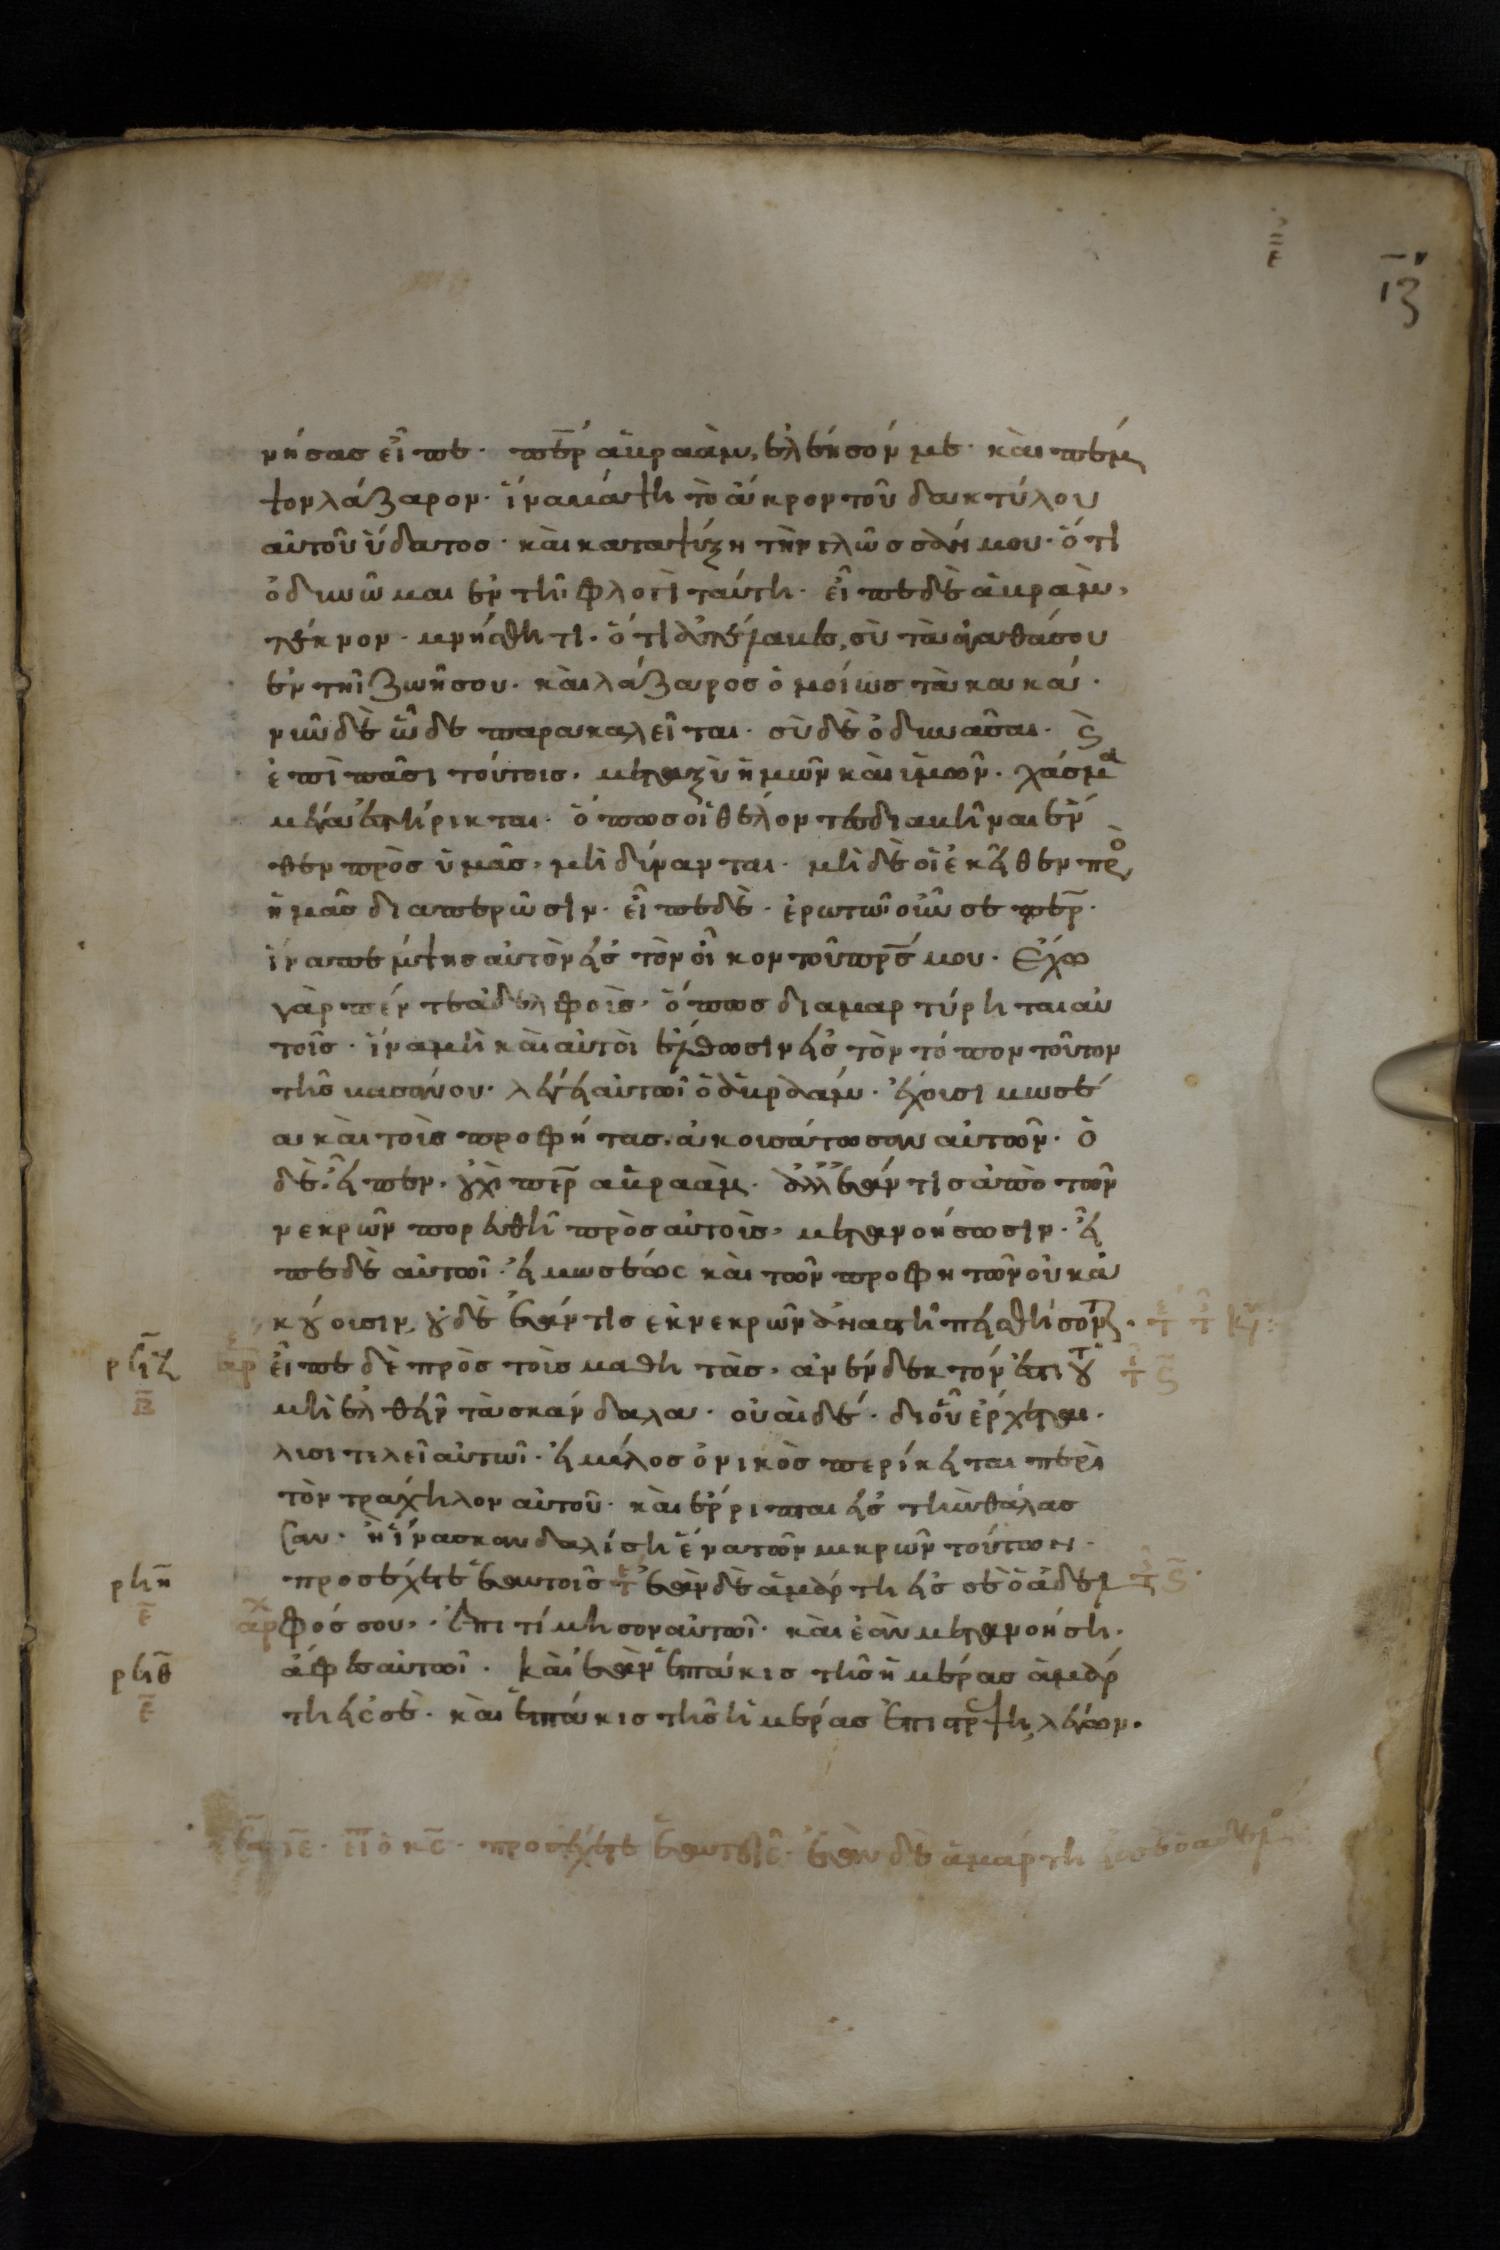 ε̄
ιζ
νήσας εἶπε· πε̅ρ ἀβραὰμ, ἐλέησόν με· καὶ πέμ
ψον λάζαρον· ἵνα βάψη τὸ ἄκρον τοῦ δακτύλου
αὐτοῦ ὕδατος· καὶ καταψύξη τὴν γλῶσσάν μου· ὅτι
ὀδυνῶμαι ἐν τῆ φλογὶ ταύτη· εἶπε δὲ ἀβραὰμ,
τέκνον· μνήσθητι· ὅτι ἀπέλαβες, σὺ τὰ ἀγαθά σου
ἐν τῆ ζωῆ σου· καὶ λάζαρος ὁμοίως τὰ κακά·
νῦν δὲ ὧδε παρακαλεῖται· σὺ δὲ ὀδυνᾶσαι· ϛ̀
ἐπὶ πᾶσι τούτοις, μεταξὺ ἡμῶν καὶ ὑμῶν· χάσμα
μέγα ἐστήρικται· ὅπως οἱ θέλοντες διαβῆναι ἔν
θεν πρὸς ὑμᾶς, μὴ δύνανται· μὴ δὲ οἱ ἐκεῖθεν πρὸ
ἡμᾶς διαπερῶσιν· εἶπε δὲ· ἐρωτῶ οὖν σε πε̅ρ·
ἵνα πέμψης αὐτὸν εἰς τὸν οἶκον τοῦ πρ̅ς μου· ἔχω
γὰρ πέντε ἀδελφοὺς, ὅπως διαμαρτύρηται αὐ
τοῖς· ἵνα μὴ καὶ αὐτοὶ ἔλθωσιν εἰς τὸν τόπον τοῦτον
τῆς βασάνου· λέγει αὐτῶ ὁ ἀβραάμ· ἔχουσι μωσέ
α καὶ τοὺς προφήτας, ἀκουσάτωσαν αὐτῶν· ὁ
δὲ εἶπεν, οὐχὶ πε̅ρ ἀβραὰμ· ἀλλ' ἐάν τις ἀπὸ τῶν
νεκρῶν πορευθῆ πρὸς αὐτοὺς, μετανοήσωσιν· εἶ
πε δὲ αὐτῶ· εἰ μωσέως καὶ τῶν προφητῶν οὐκ ἀ
κούουσιν, οὐδὲ ἐάν τις ἐκ νεκρῶν ἀναστῆ πεισθήσον·
ρηζ β̄ ἀρ εἶπε δὲ πρὸς τοὺς μαθητὰς, ἀνένδεκτόν ἐστι τοῦ
μὴ ἐλθεῖν τὰ σκάνδαλα· οὐαὶ δέ· δι' οὗ ἔρχεται·
λυσιτελεῖ αὐτῶ· εἰ μύλος ὀνικὸς περίκειται περὶ
τὸν τράχηλον αὐτοῦ· καὶ ἔρριπται εἰς τὴν θάλασ
σαν· ἢ ἵνα σκανδαλίση ἕνα τῶν μικρῶν τούτων·
ρηη ε̄ προσέχετε ἑαυτοῖς ἐὰν δὲ ἁμάρτη εἰς σὲ ὁ ἀδελ
ἀρχ φός σου, ἐπιτίμησον αὐτῶ· καὶ ἐὰν μετανοήση·
ρηθ ε̄ ἄφες αὐτῶ· καὶ ἐὰν ἑπτάκις τῆς ἡμέρας ἁμάρ
τη εἰς σὲ· καὶ ἑπτάκις τῆς ἡμέρας ἐπιστρέψη, λέγων·
ιε̅· εἶπ ὁ κς̅· προσέχετε ἑαυτοῖς· ἐὰν δὲ ἁμάρτη εἰς σὲ ὁ ἀδελφὸ